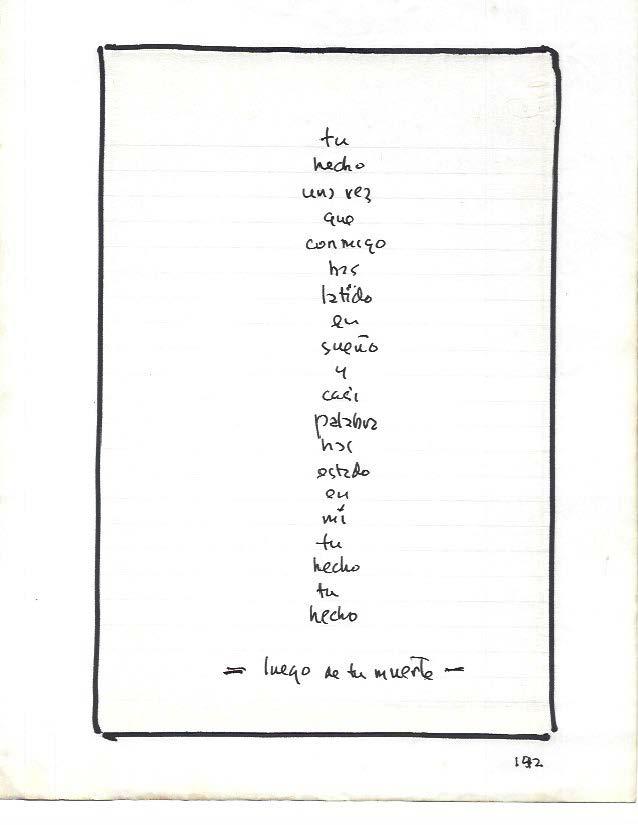 tu
hecho
una vez
que
conmigo
has
latido
en
sueño
y
casi
palabra
has
estado
en
mí
tu
hecho
tu
hecho
= luego de tu muerte =
192